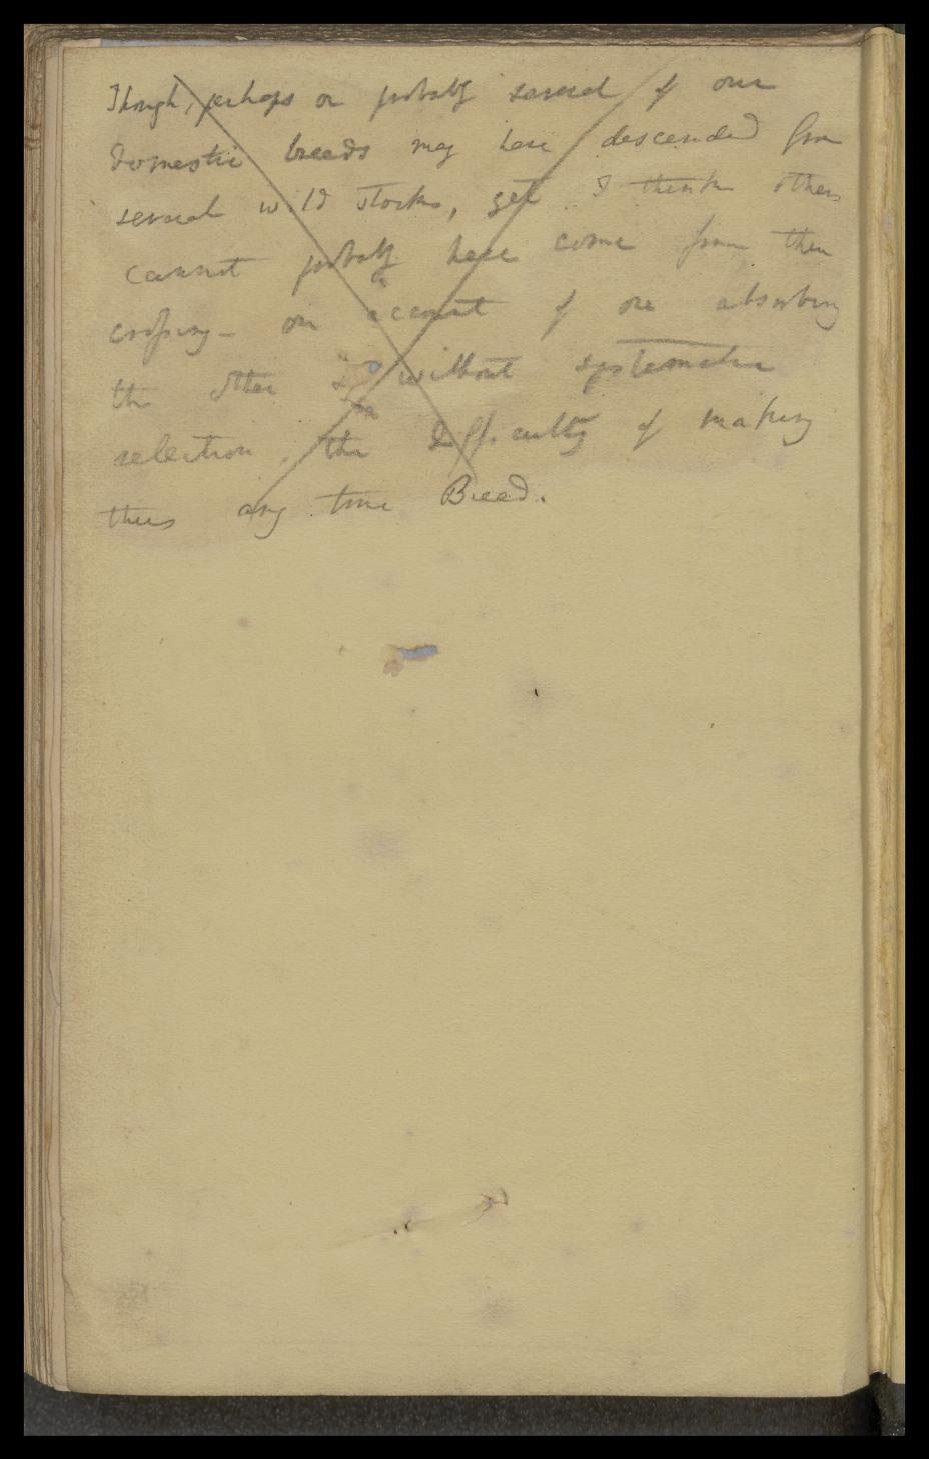 Though, perhaps or probably several of our
domestic breeds may have descended from
several wild stocks, yet I think others
cannot probably have come from their
crossing — on account of one absorbing
the other & without systematic
selection, the difficulty of making
thus any true Breed.